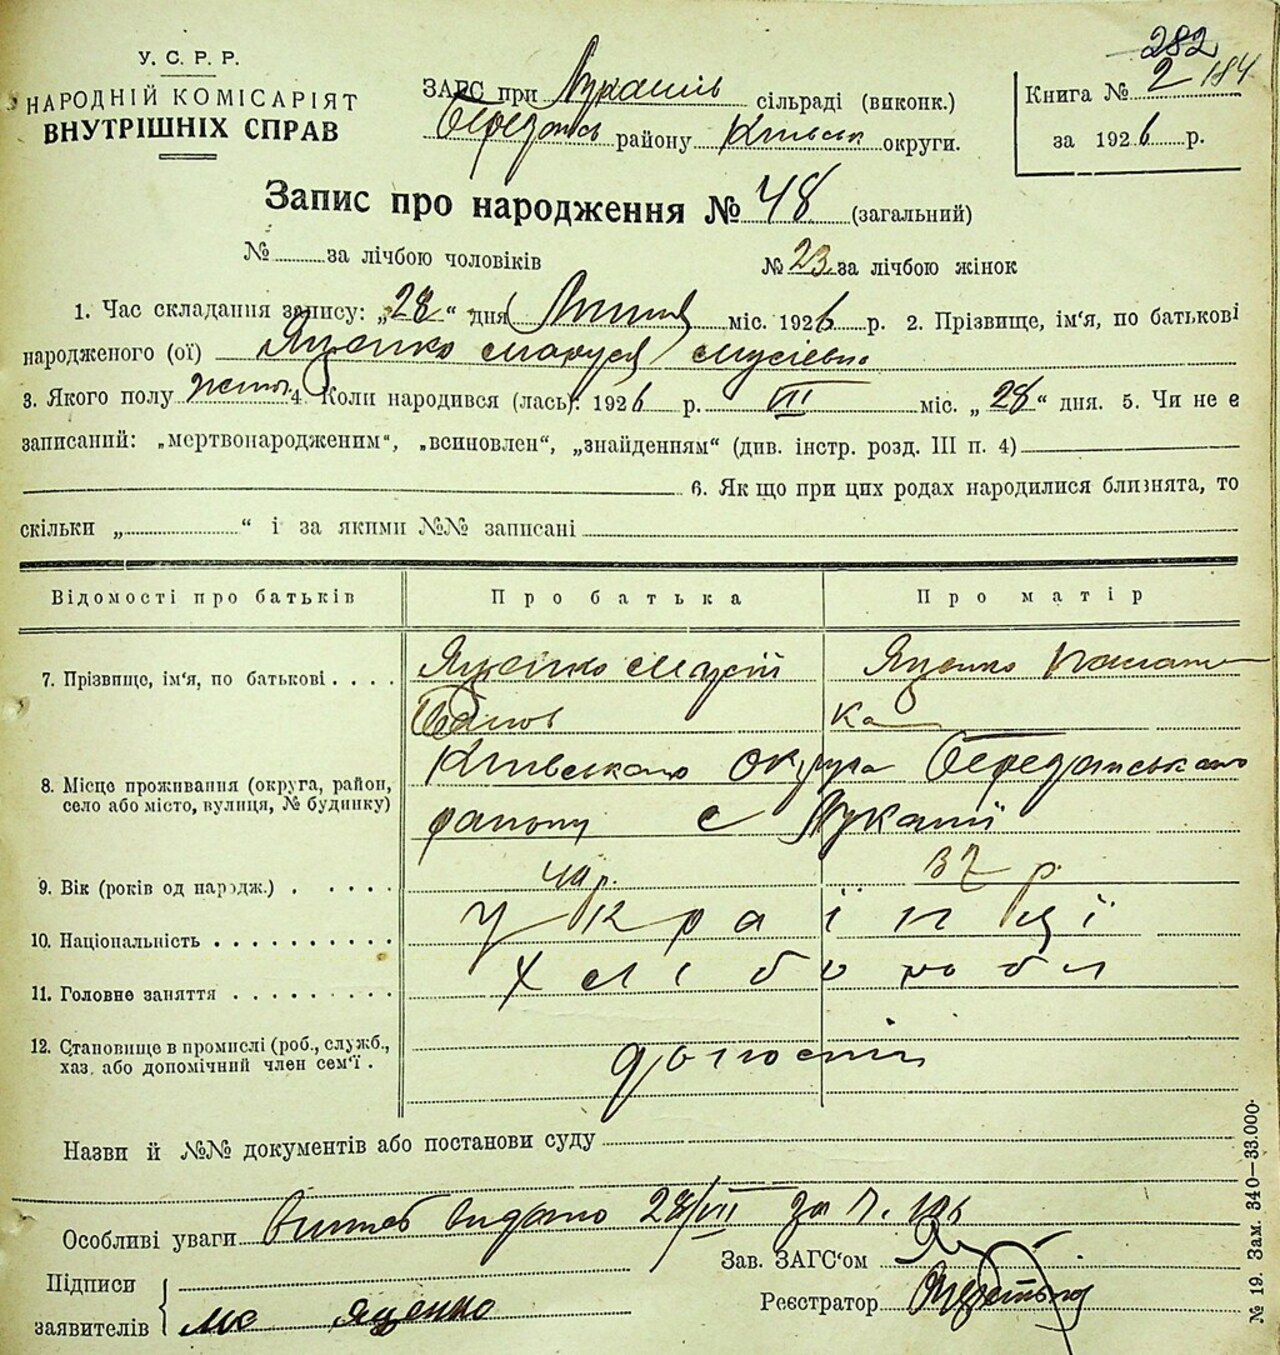 У. С. Р. Р.
НАРОДНІЙ КОМІСАРІЯТ
ВНУТРІШНІХ СПРАВ
282
ЗАГС при сільраді (виконк.)
району Київськ округи.
Книга № 2 184
за 1926 р.
Запис про народження № 48 (загальний)
№ за лічбою чоловіків
№ 23 за лічбою жінок
1. Час складання запису: „28“ дня Липня міс. 1926 р. 2. Прізвище, ім‘я, по батькові
народженого (ої) Яценко Маруся Мусієвна
3. Якого полу жіноч. 4. Коли народився (лась): 1926 р. VII міс. „28“ дня. 5. Чи не є
записаний: „мертвонародженим“, „всиновлен“, „знайденням“ (див. інстр. розд. III п. 4)
6. Як що при цих родах народилися близнята, то
скільки „ “ і за якими №№ записані
Відомості про батьків
Про батька
Про матір
7. Прізвище, ім‘я, по батькові . . . .
Яценко Мусій
Яценко
Іванов
ка
8. Місце проживання (округа, район,
село або місто, вулиця, № будинку)
Київського округа
району с Лукаші
9. Вік (років од народж.) . . . . .
40 р.
37 р.
10. Національність . . . . . . . . . .
Українці
11. Головне заняття . . . . . . . . .
Хлібороби
12. Становище в промислі (роб., служб.,
хаз. або допомічний член сем‘ї .
Назви й №№ документів або постанови суду
Особливі уваги видано 28/VII за №
Зав. ЗАГС‘ом
Підписи
заявителів
Яценко
Реєстратор
№ 19. Зам. 340—33.000.